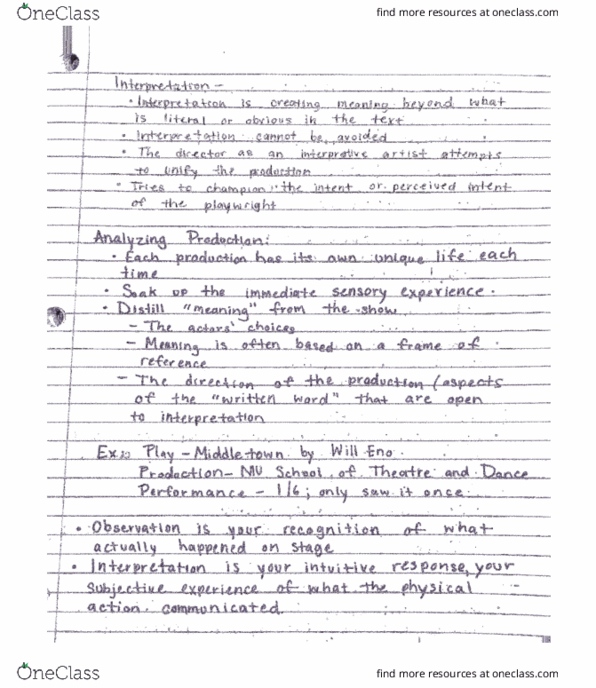 OneClass
find more resources at oneclass.com
Interpretation -
• Interpretation is creating meaning beyond what
is literal or obvious in the text
• Interpretation cannot be avoided
• The director as an interpretive artist attempts
to unify the production
• Tries to champion the intent or perceived intent
of the playwright
Analyzing Production:
• Each production has its own unique life each
time
• Soak up the immediate sensory experience.
• Distill "meaning" from the show
- The actors' choices
- Meaning is often based on a frame of
reference
- The direction of the production (aspects
of the "written word" that are open
to interpretation
Ex: Play - Middletown by Will Eno
Production - MU School of Theatre and Dance
Performance - 1/6; only saw it once
• Observation is your recognition of what
actually happened on stage
• Interpretation is your intuitive response, your
subjective experience of what the physical
action communicated.
OneClass
find more resources at oneclass.com